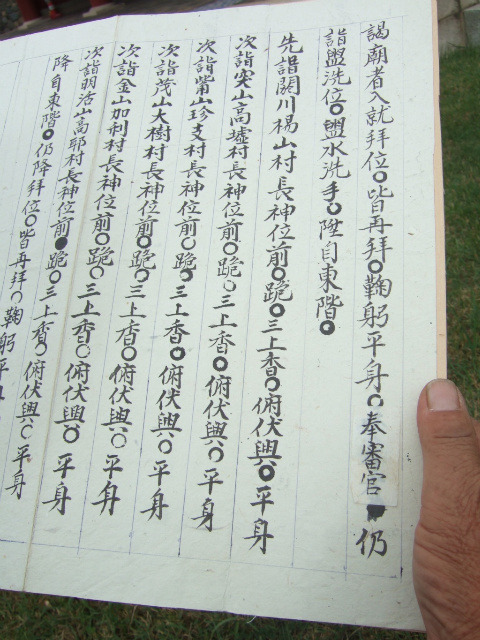 謁廟者入就拜位○皆再拜○鞠躬平身○奉審官 仍
詣盥洗位○盥水洗手○陞自東階○
先詣閼川楊山村長神位前○跪○三上香○俯伏興○平身
次詣突山高墟村長神位前○跪○三上香○俯伏興○平身
次詣觜山珍支村長神位前○跪○三上香○俯伏興○平身
次詣茂山大樹村長神位前○跪○三上香○俯伏興○平身
次詣金山加利村長神位前○跪○三上香○俯伏興○平身
次詣明活山高耶村長神位前●跪○三上香○俯伏興○平身
降自東階○仍降拜位○皆再拜○鞠躬平身